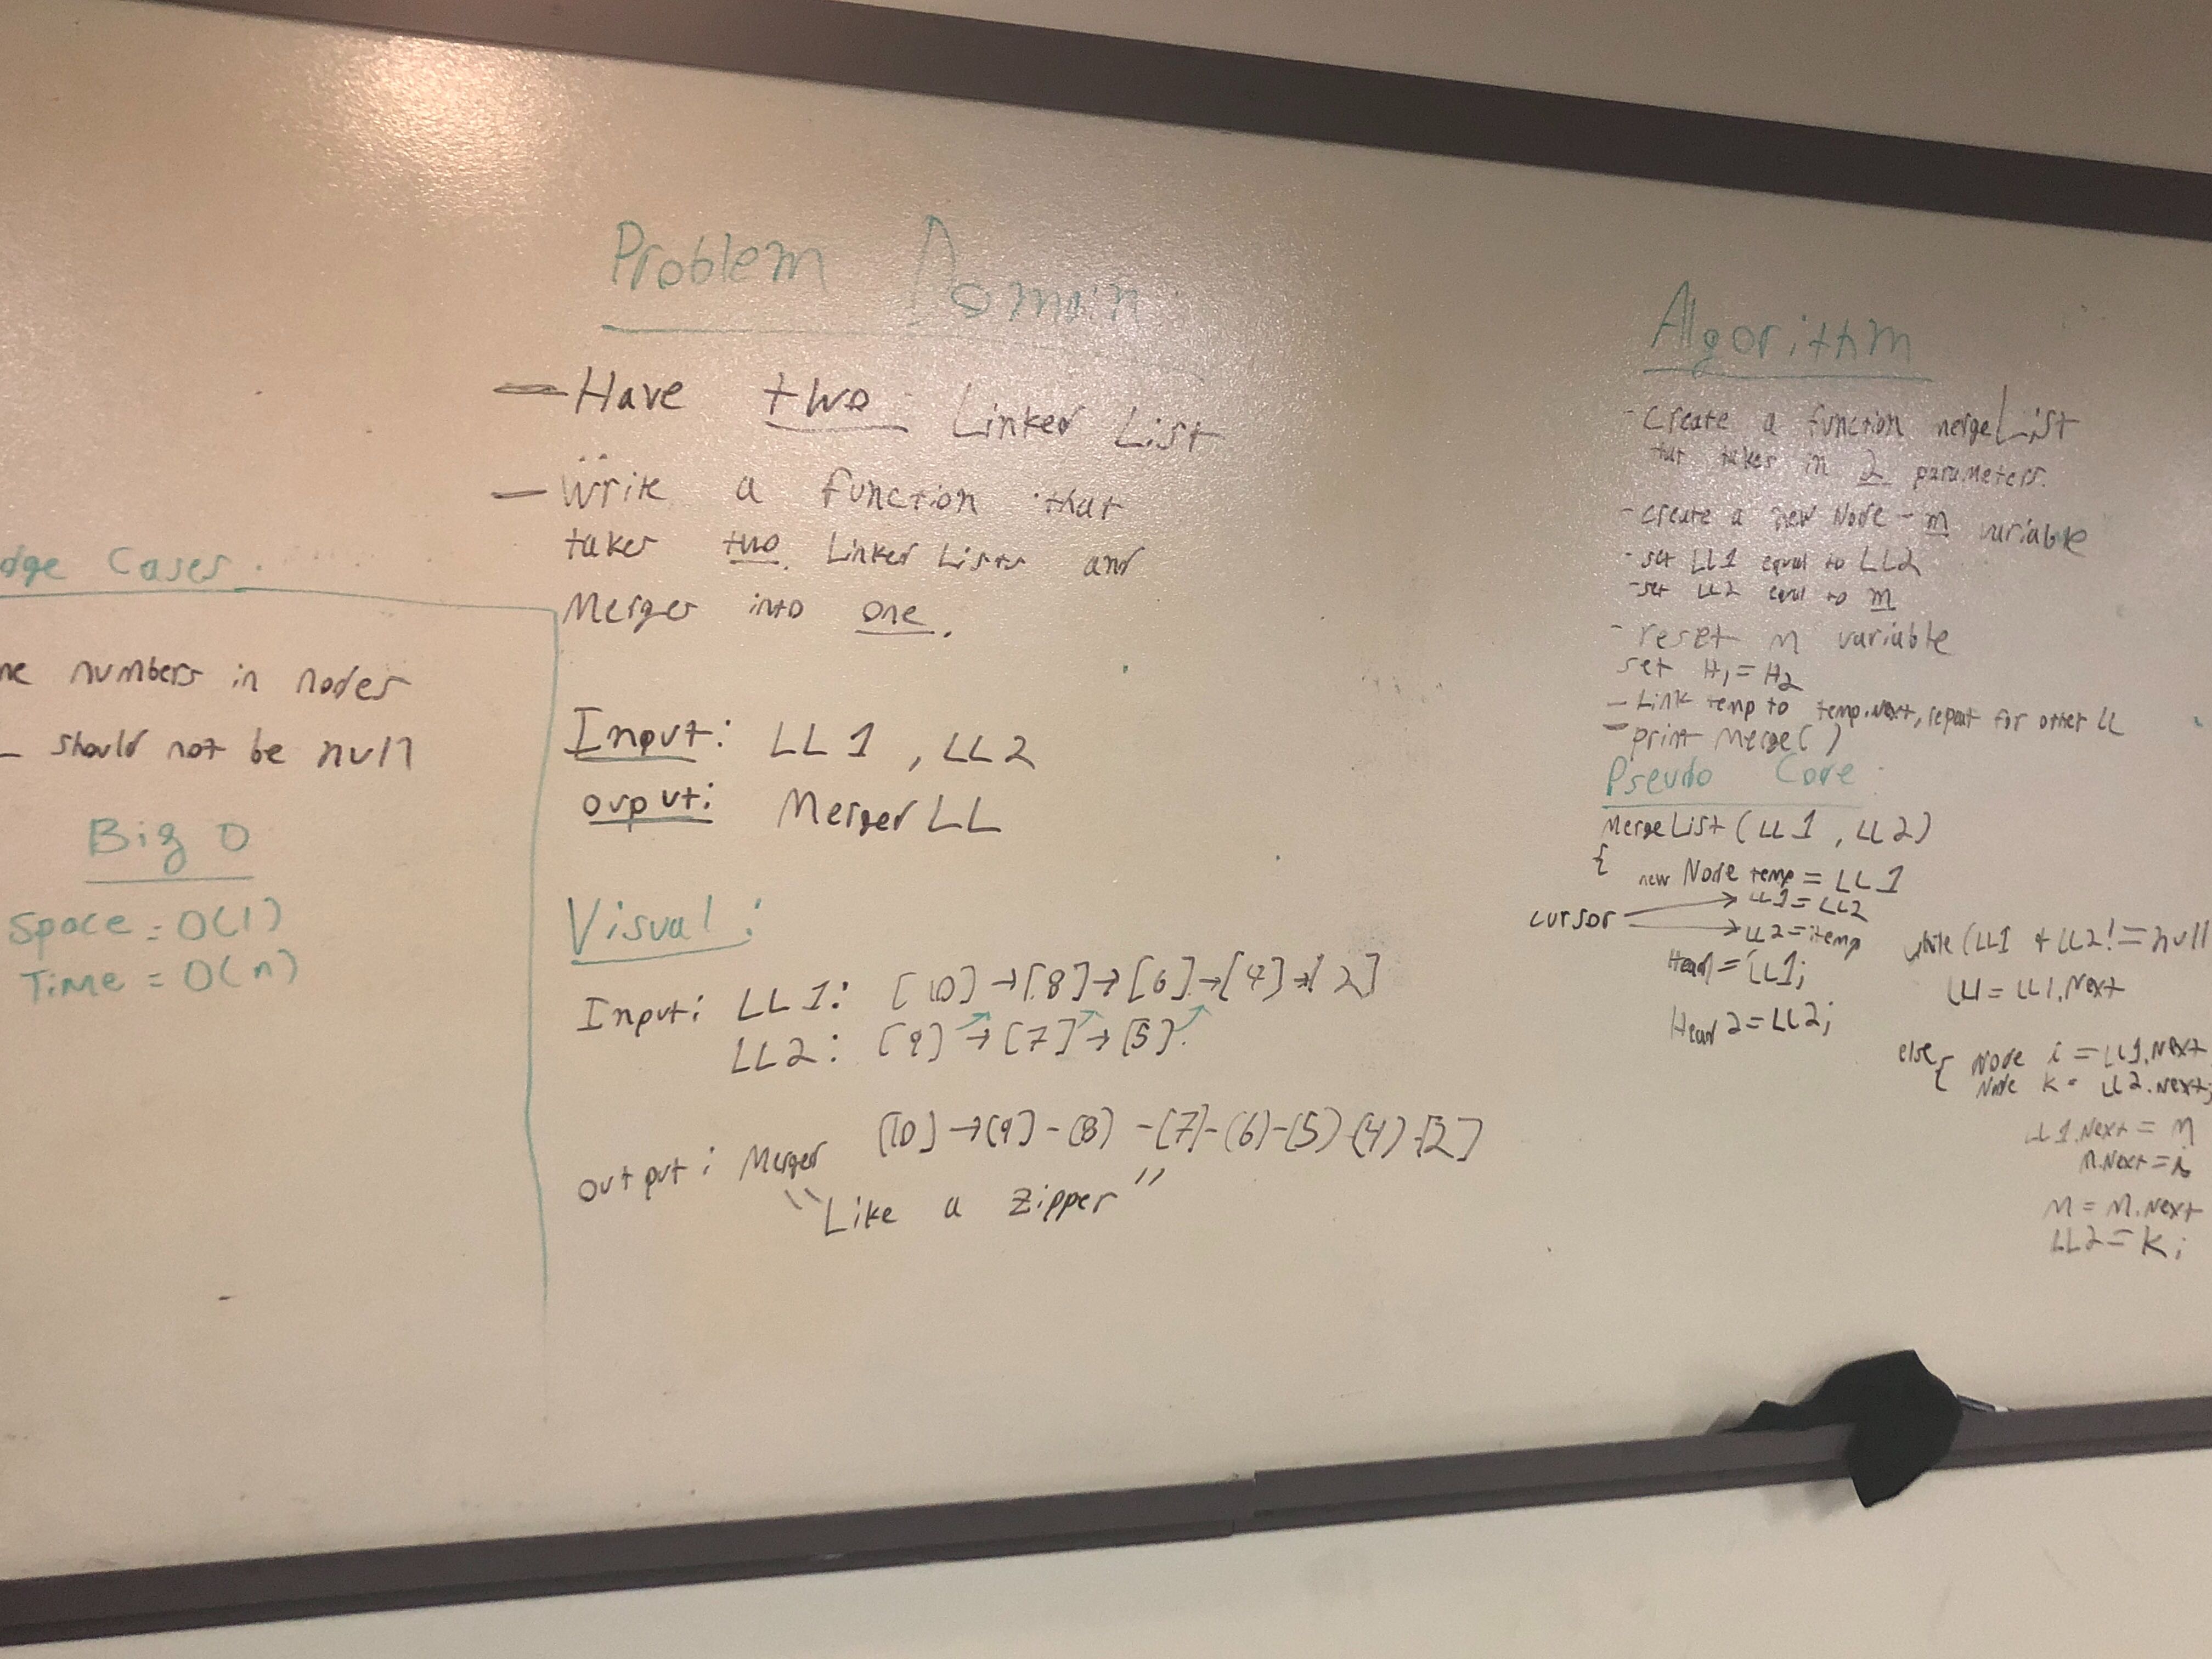 dge Cases.
ne numbers in nodes
- should not be null
Big O
Space = O(1)
Time = O(n)
Problem Domain:
- Have two Linked List
- Write a function that
takes two Linked Lists and
Merges into one.
Input: LL1, LL2
Output: Merged LL
Visual:
Input: LL1: [10] → [8] → [6] → [4] → [2]
LL2: [9] → [7] → [5]
Output: Merged [10] → [9] - [8] - [7] - [6] - [5] - [4] - [2]
"Like a Zipper"
Algorithm
- Create a function mergeList
that takes in 2 parameters.
- create a new Node - m variable
- set LL1 equal to LL2
- set LL2 equal to m
- reset m variable
set H1 = H2
- Link temp to temp.next, repeat for other LL
- print Merge()
Pseudo Code:
MergeList(LL1, LL2)
{
new Node temp = LL1
LL1 = LL2
cursor
LL2 = temp
Head = LL1;
Head 2 = LL2;
while (LL1 + LL2 != null
LL1 = LL1.Next
else { Node i = LL1.Next
Node k = LL2.Next;
LL1.Next = M
M.Next = i
M = M.Next
LL2 = k;